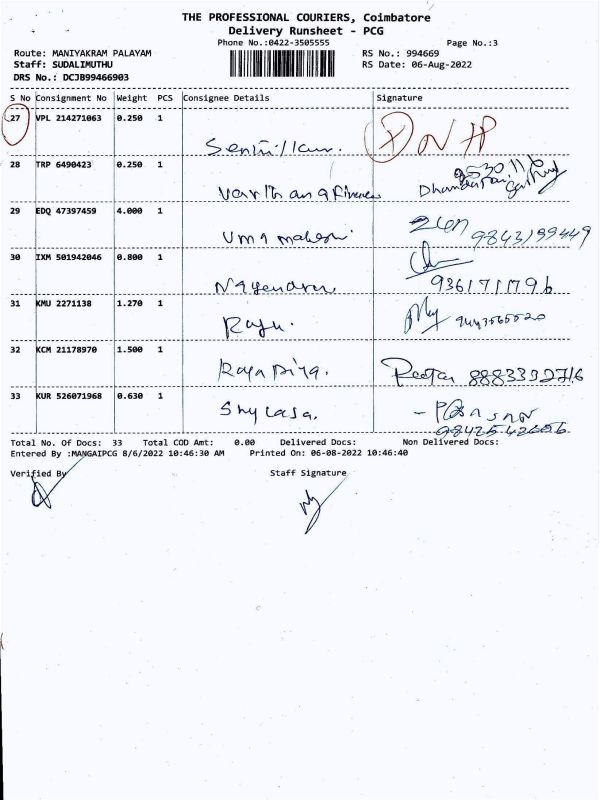 THE PROFESSIONAL COURIERS, Coimbatore
Delivery Runsheet - PCG
Phone No.:0422-3505555
Page No.:3
Route: MANIYAKRAM PALAYAM
RS No.: 994669
Staff: SUDALIMUTHU
RS Date: 06-Aug-2022
DRS No.: DCJB99466903
S No Consignment No Weight PCS Consignee Details Signature
27 VPL 214271063 0.250 1
DNH
28 TRP 6490423 0.250 1
29 EDQ 47397459 4.000 1
Uma maheswari 9843199449
30 IXM 501942046 0.800 1
Nagendran 9361711796
31 KMU 2271138 1.270 1
Raju.
32 KCM 21178970 1.500 1
Raja priya. 8883332716
33 KUR 526071968 0.630 1
Total No. Of Docs: 33 Total COD Amt: 0.00 Delivered Docs: Non Delivered Docs:
Entered By :MANGAIPCG 8/6/2022 10:46:30 AM Printed On: 06-08-2022 10:46:40
Verified By Staff Signature